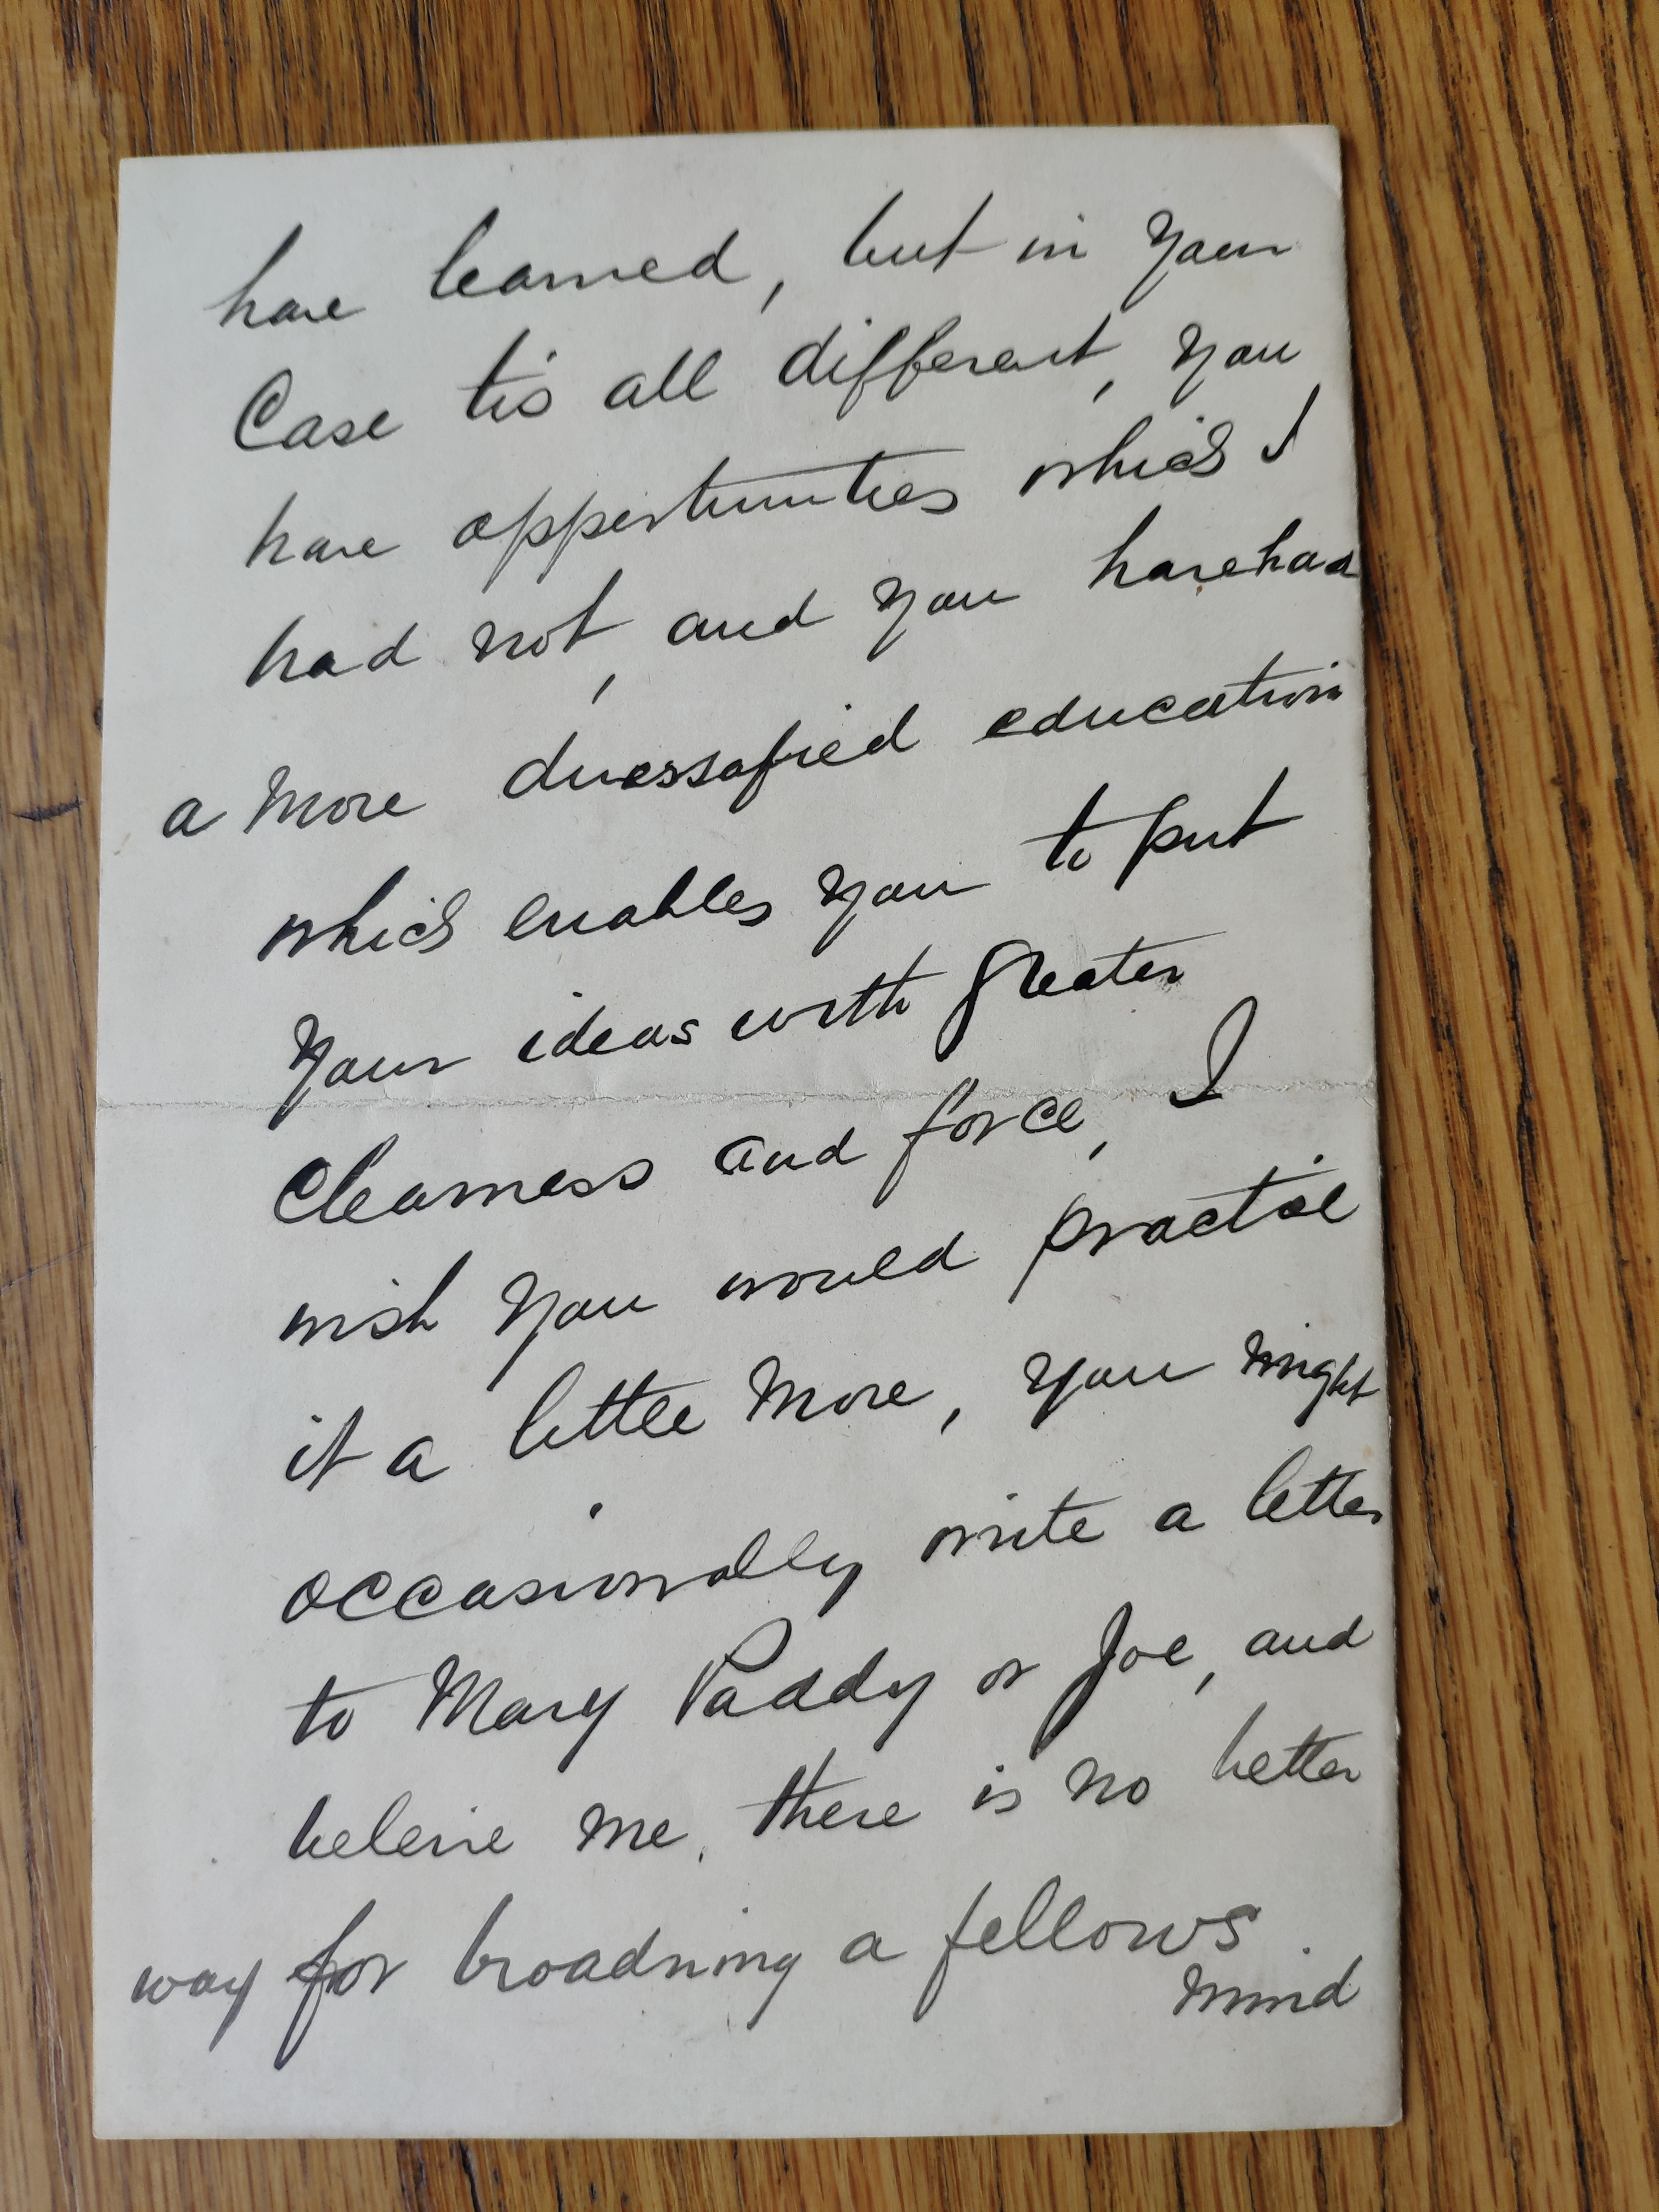 have learned, but in your
Case tis all different, you
have opportunities which I
had not, and you have had
a more diverssafied education
which enables you to put
your ideas with greater
Clearness and force, I
wish you would practise
it a little more, you might
occasionally write a letter
to Mary Paddy or Joe, and
beleive me, there is no better
way for broadning a fellows
mind